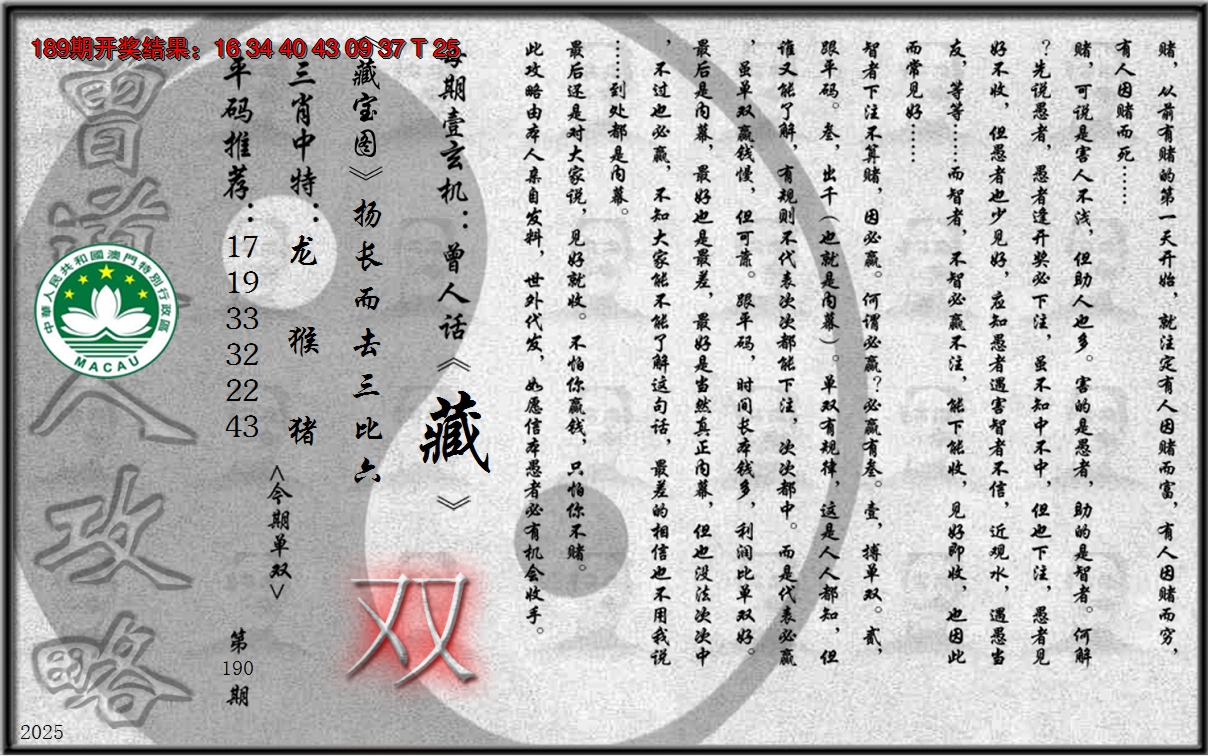 189期开奖结果：16 34 40 43 09 37 T 25
赌，从前有赌的第一天开始，就注定有人因赌而富，有人因赌而穷，
有人因赌而死……
赌，可说是害人不浅，但助人也多。害的是愚者，助的是智者。何解
？先说愚者，愚者逢开奖必下注，虽不知中不中，但也下注，愚者见
好不收，但愚者也少见好，应知愚者遇害智者不信，近观水，遇愚当
友，等等……而智者，不智必赢不注，能下能收，见好即收，也因此
而常见好……
智者下注不算赌，因必赢。何谓必赢？必赢有叁。壹，搏单双。贰，
跟平码。叁，出千（也就是内幕）。单双有规律，这是人人都知，但
谁又能了解，有规则不代表次次都能下注，次次都中。而是代表必赢
，虽单双赢钱慢，但可靠。跟平码，时间长本钱多，利润比单双好。
最后是内幕，最好也是最差，最好是当然真正内幕，但也没法次次中
，不过也必赢，不知大家能不能了解这句话，最差的相信也不用我说
……到处都是内幕。
最后还是对大家说，见好就收。不怕你赢钱，只怕你不赌。
此攻略由本人亲自发料，世外代发，如愿信本愚者必有机会收手。
每期壹玄机：曾人话《藏》
《藏宝图》扬长而去三比六
双
三肖中特：龙 猴 猪
<今期单双>
平码推荐：
17
19
33
32
22
43
第
190
期
曾道人攻略
中華人民共和國澳門特別行政區
MACAU
2025